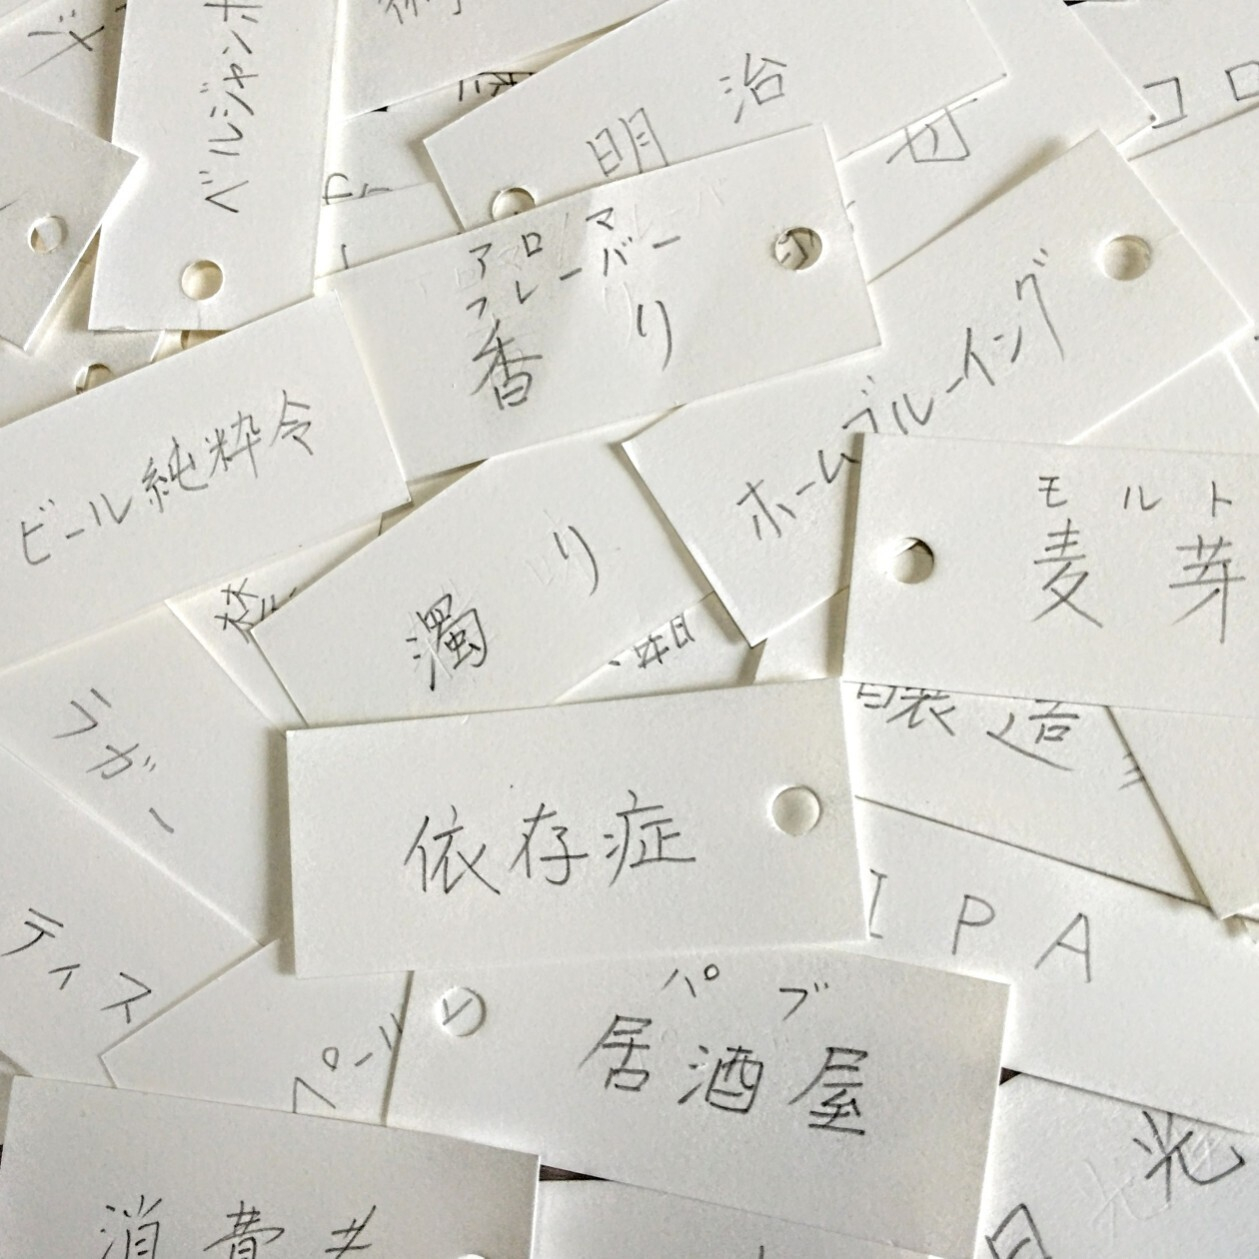 ベルジャン
明治
コロ
アロマ
フレーバー
香り
ホームブルーイング
ビール純粋令
モルト
麦芽
濁り
製造
ラガー
依存症
IPA
ティス
パブ
居酒屋
ペール
消費
光